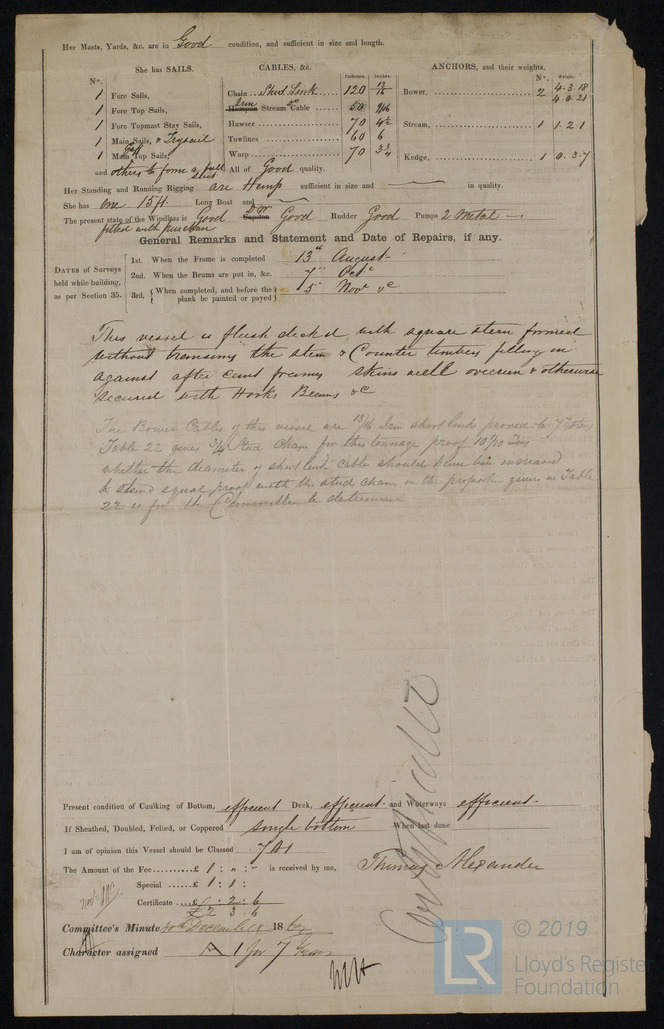 Her Masts, Yards, &c. are in Good condition, and sufficient in size and length.
She has SAILS.
CABLES, &c.
ANCHORS, and their weights.
Nº.
Fathoms.
Inches.
Nº.
Weight.
1 Fore Sails,
Chain Short Link 120 13/16
Bower, 2 4.3.18
4.0.21
1 Fore Top Sails,
Hempen Iron Stream Cable 50 9/16
1 Fore Topmast Stay Sails,
Hawser 70 4½
Stream, 1 1.2.1
1 Main Sails, & Trysail
Towlines 60 6
1 Main Gaff Top Sails,
Warp 70 3¾
Kedge, 1 0.3.7
and others to form a full suit
All of Good quality.
Her Standing and Running Rigging are Hemp sufficient in size and in quality.
She has one 15 ft. Long Boat and
The present state of the Windlass is Good Capstan Good Rudder Good Pumps 2 Metal
fitted with purchase
General Remarks and Statement and Date of Repairs, if any.
DATES of Surveys held while building, as per Section 35.
1st. When the Frame is completed 13th August
2nd. When the Beams are put in, &c. 7th Octr
3rd. When completed, and before the plank be painted or payed 5th Novr &c
This vessel is flush deck'd with square stern formed
without transoms the stern & Counter timbers filling in
against after cant frames skins well overrun & otherwise
secured with Hooks Beams &c
The Bower Cables of this vessel are 13/16 Iron short link proved to 7 tons
Table 22 gives 3/4 Stud Chain for this tonnage proof 10/10 Tons
whether the diameter of short link cable should have been increased
to stand equal proof with the stud chain in the proportion given in Table
22 is for the Committee to determine
Certificate
Present condition of Caulking of Bottom, efficient Deck, efficient and Waterways efficient
If Sheathed, Doubled, Felted, or Coppered single bottom When last done
I am of opinion this Vessel should be Classed 7 A1
The Amount of the Fee £ 1 : „ : „ is received by me, Thomas Alexander
Special £ 1 : 1 :
Certificate : 2 : 6
£2 3 . 6
Committee's Minute 30th December 186
Character assigned A 1 for 7 Years
© 2019
LR
Lloyd's Register
Foundation